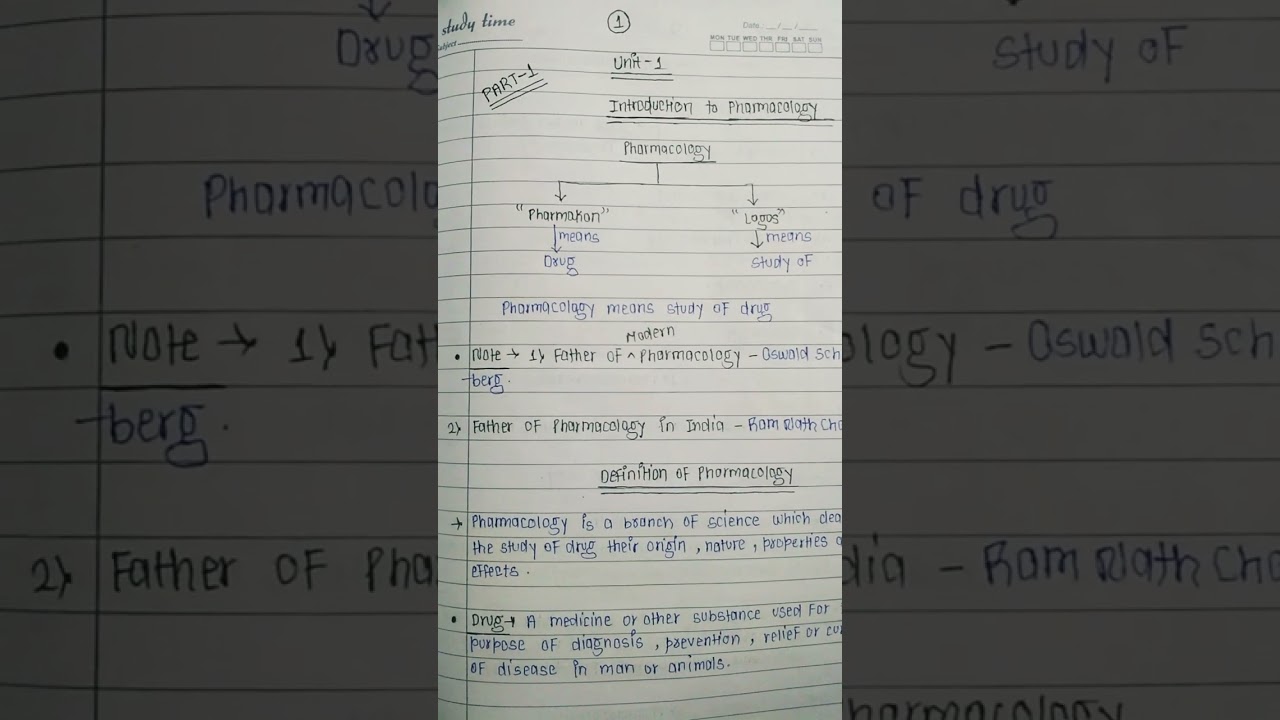 study time
1
Date: __/__/__
Subject
MON TUE WED THR FRI SAT SUN
PART-1
Unit-1
Introduction to Pharmacology
Pharmacology
"Pharmakon" "Logos"
means means
Drug Study of
Pharmacology means study of drug
Modern
• Note → 1) Father of ^ Pharmacology - Oswald Sch
-berg.
2) Father of Pharmacology in India - Ram Nath Cho
Definition of Pharmacology
→ Pharmacology is a branch of science which dea
the study of drug their origin, nature, properties
effects.
• Drug → A medicine or other substance used for
purpose of diagnosis, prevention, relief or cu
of disease in man or animals.